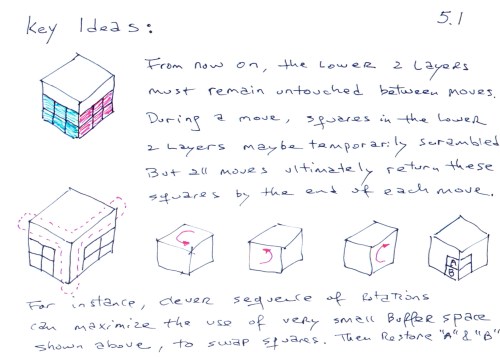 Key Ideas:
5.1
From now on, the Lower 2 Layers
must remain untouched between moves.
During a move, squares in the Lower
2 Layers maybe temporarily scrambled
But all moves ultimately return these
squares by the end of each move.
A
B
For instance, clever sequence of Rotations
can maximize the use of very small Buffer space
shown above, to swap squares. Then Restore "A" & "B"